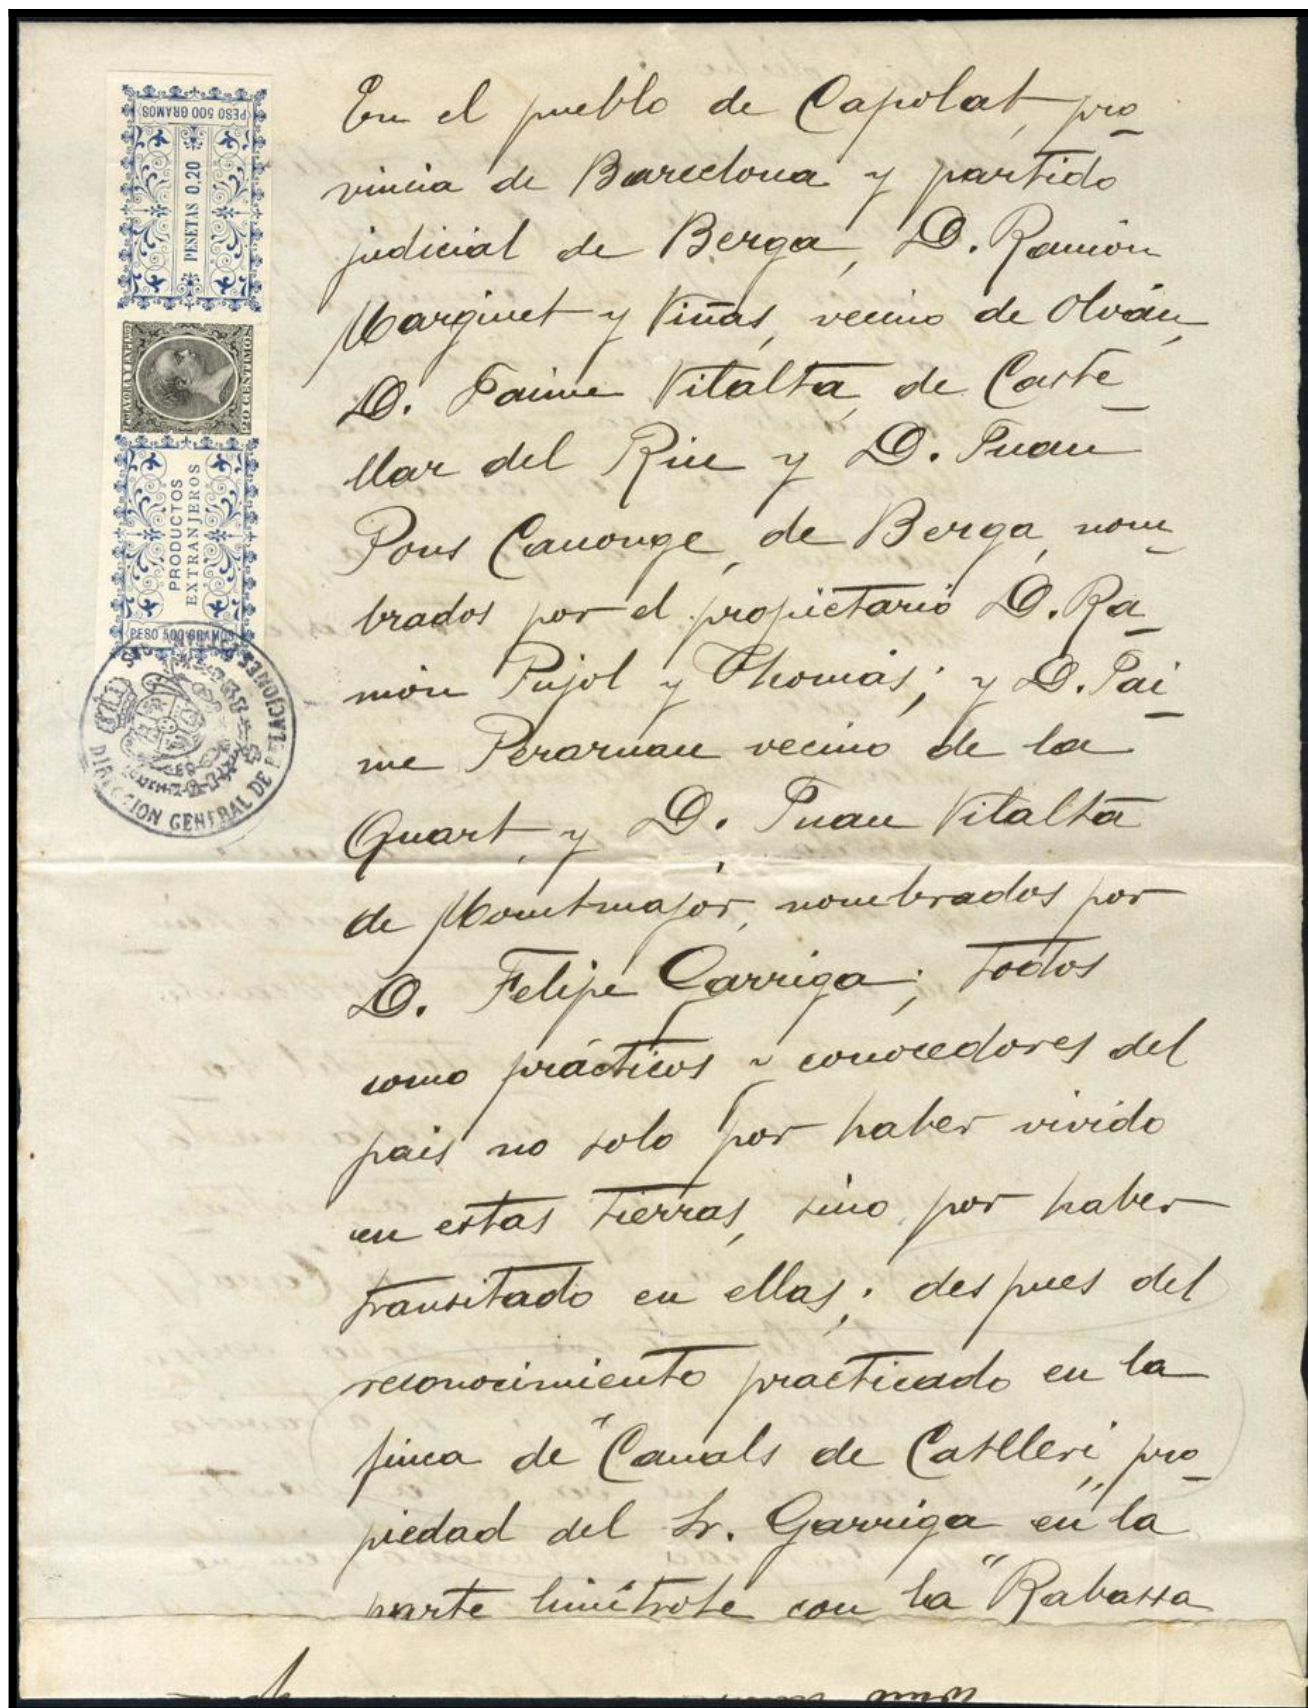 PESO 500 GRAMOS
PESETAS 0,20
PÓLVORA Y EXPLOS
20 CENTIMOS
PRODUCTOS
EXTRANJEROS
PESO 500 GRAMOS
DIRECCION GENERAL DE
En el pueblo de Capolat, pro-
vincia de Barcelona y partido
judicial de Berga, D. Ramón
Marginet y Viñas, vecino de Olván,
D. Jaime Vilalta, de Caste-
llar del Riu y D. Juan
Pons Canonge, de Berga, nom-
brados por el propietario D. Ra-
món Pujol y Thomás; y D. Jai-
me Perarnau vecino de la
Quart, y D. Juan Vilalta
de Montmajor, nombrados por
D. Felipe Garriga; todos
como prácticos y conocedores del
pais no solo por haber vivido
en estas tierras, sino por haber
transitado en ellas; despues del
reconocimiento practicado en la
finca de "Canals de Catlleri", pro-
piedad del Sr. Garriga en la
parte limítrofe con la "Rabassa